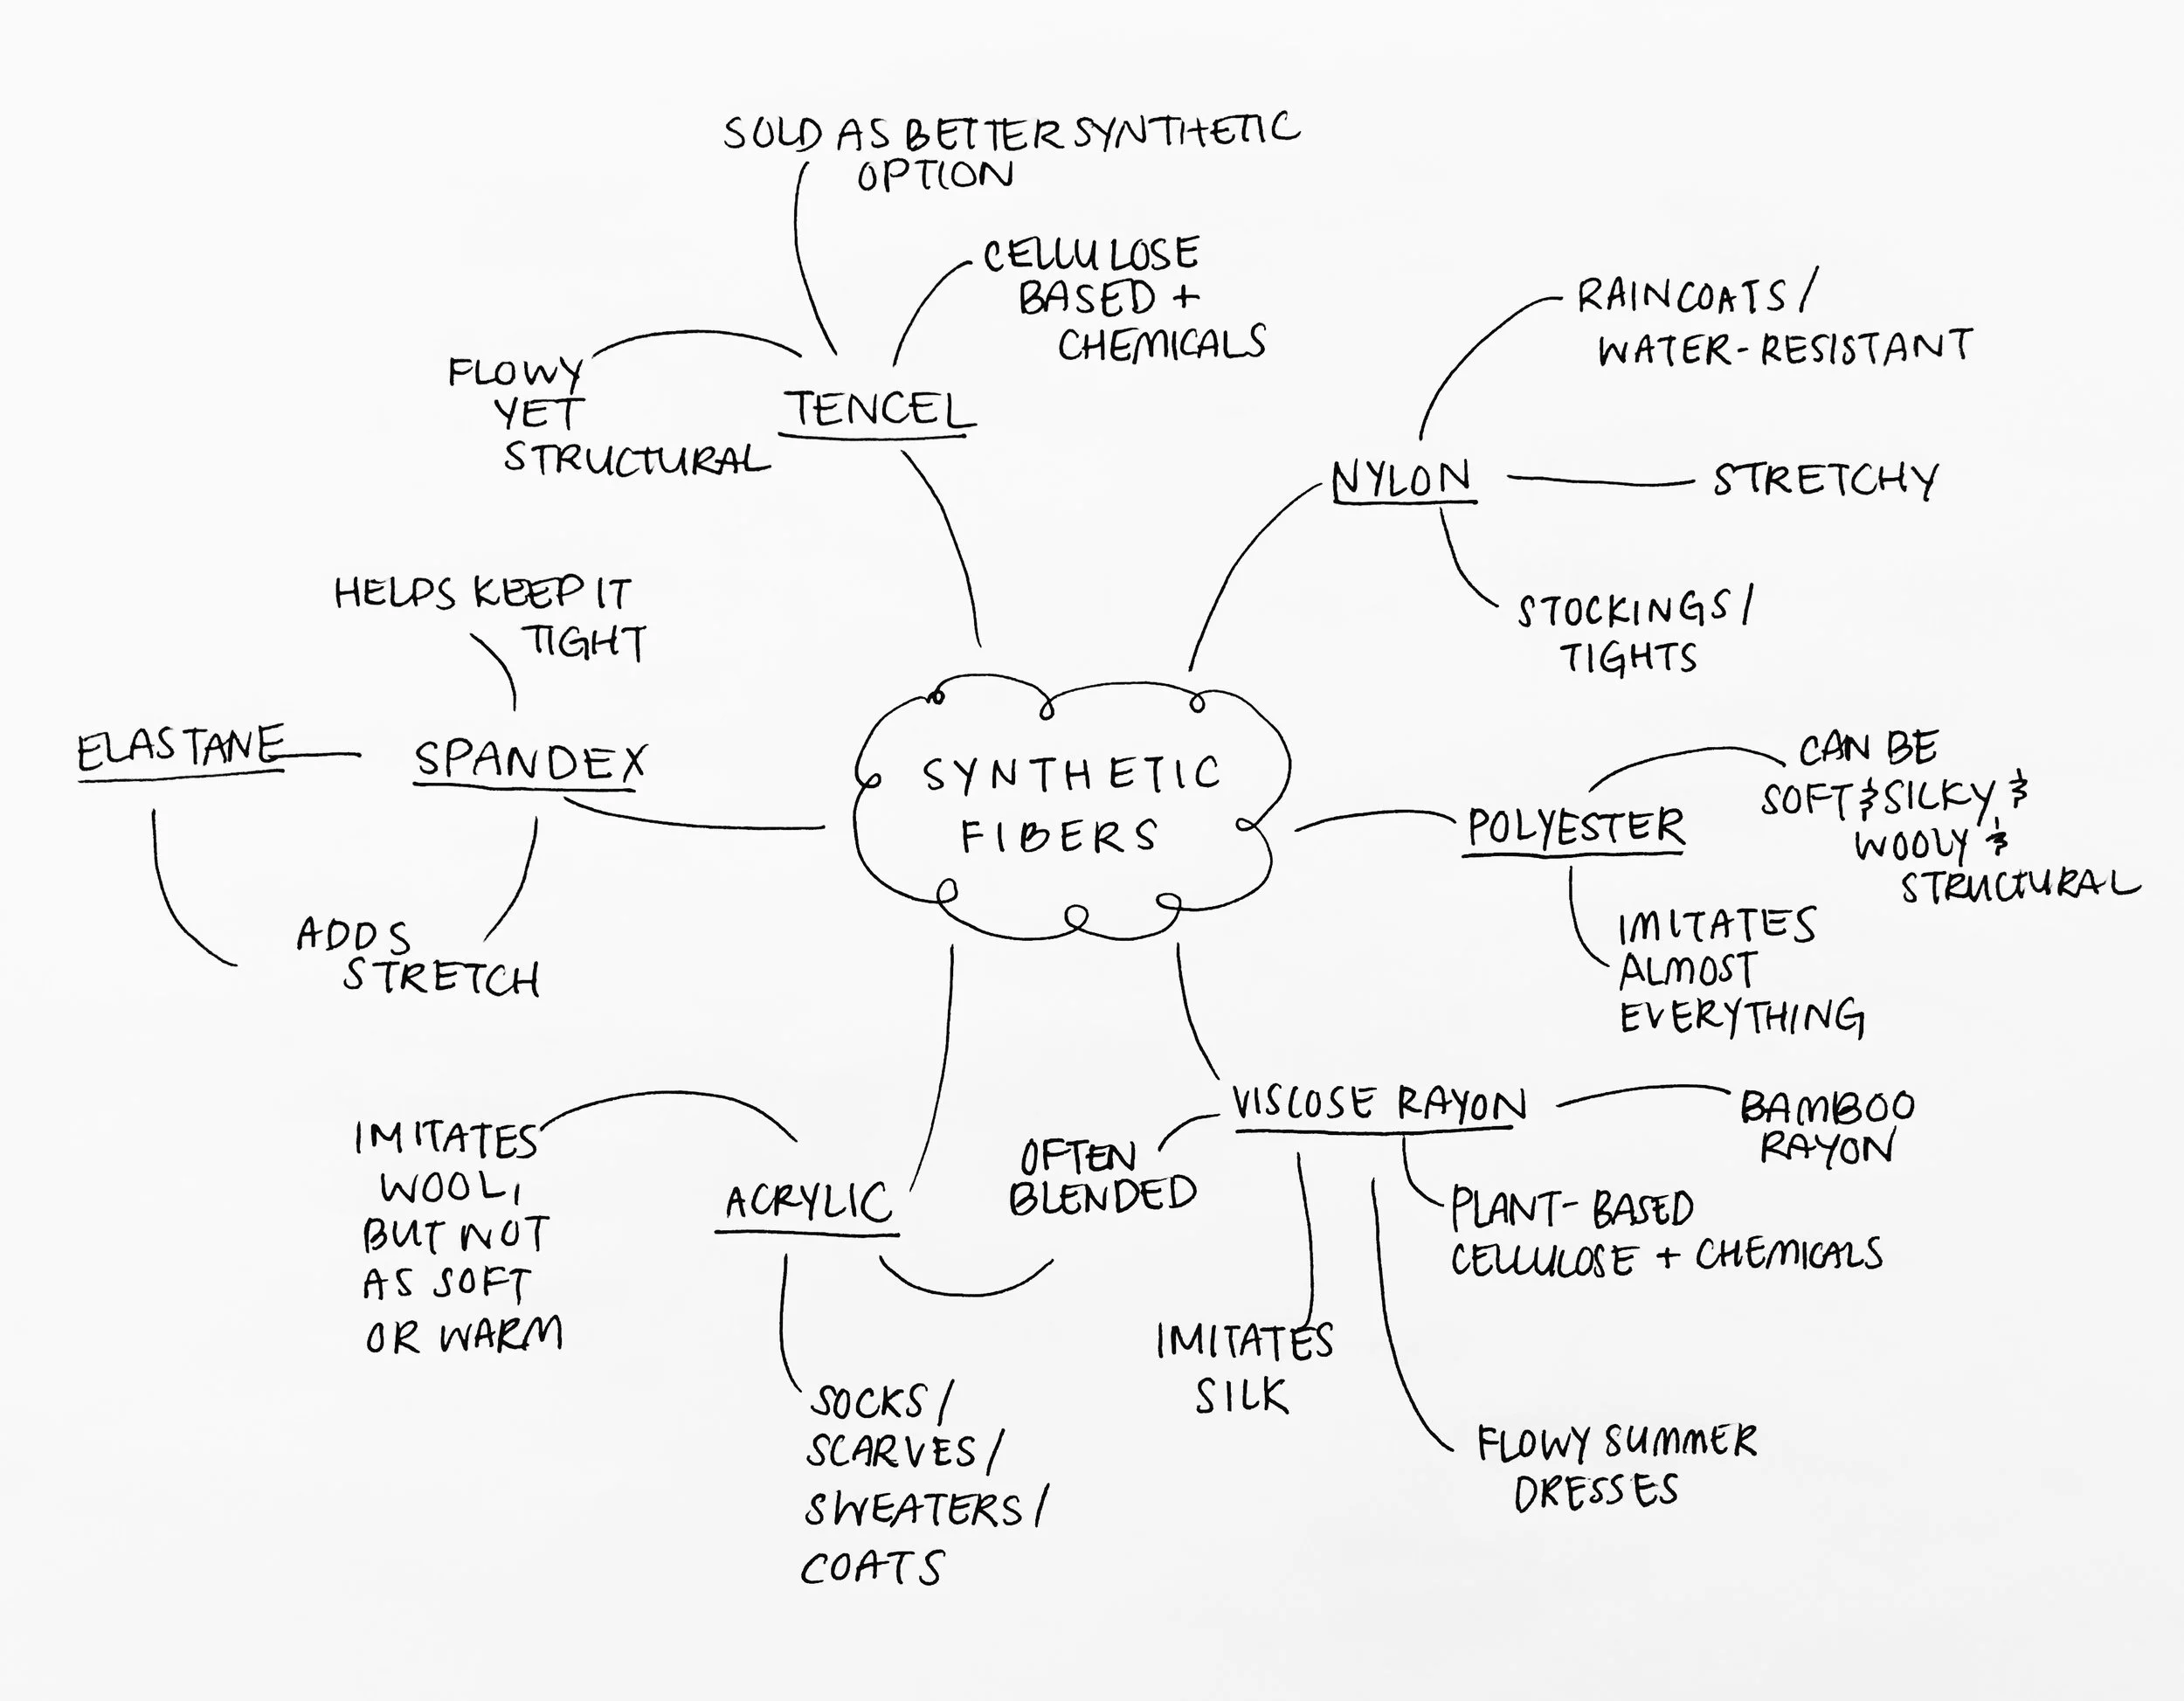 SOLD AS BETTER SYNTHETIC
OPTION
CELLULOSE
BASED +
CHEMICALS
FLOWY
YET
STRUCTURAL
TENCEL
RAINCOATS/
WATER-RESISTANT
NYLON
STRETCHY
STOCKINGS/
TIGHTS
HELPS KEEP IT
TIGHT
ELASTANE
SPANDEX
ADDS
STRETCH
SYNTHETIC
FIBERS
POLYESTER
CAN BE
SOFT & SILKY &
WOOLY &
STRUCTURAL
IMITATES
ALMOST
EVERYTHING
VISCOSE RAYON
BAMBOO
RAYON
OFTEN
BLENDED
PLANT-BASED
CELLULOSE + CHEMICALS
IMITATES
SILK
FLOWY SUMMER
DRESSES
ACRYLIC
IMITATES
WOOL,
BUT NOT
AS SOFT
OR WARM
SOCKS/
SCARVES/
SWEATERS/
COATS